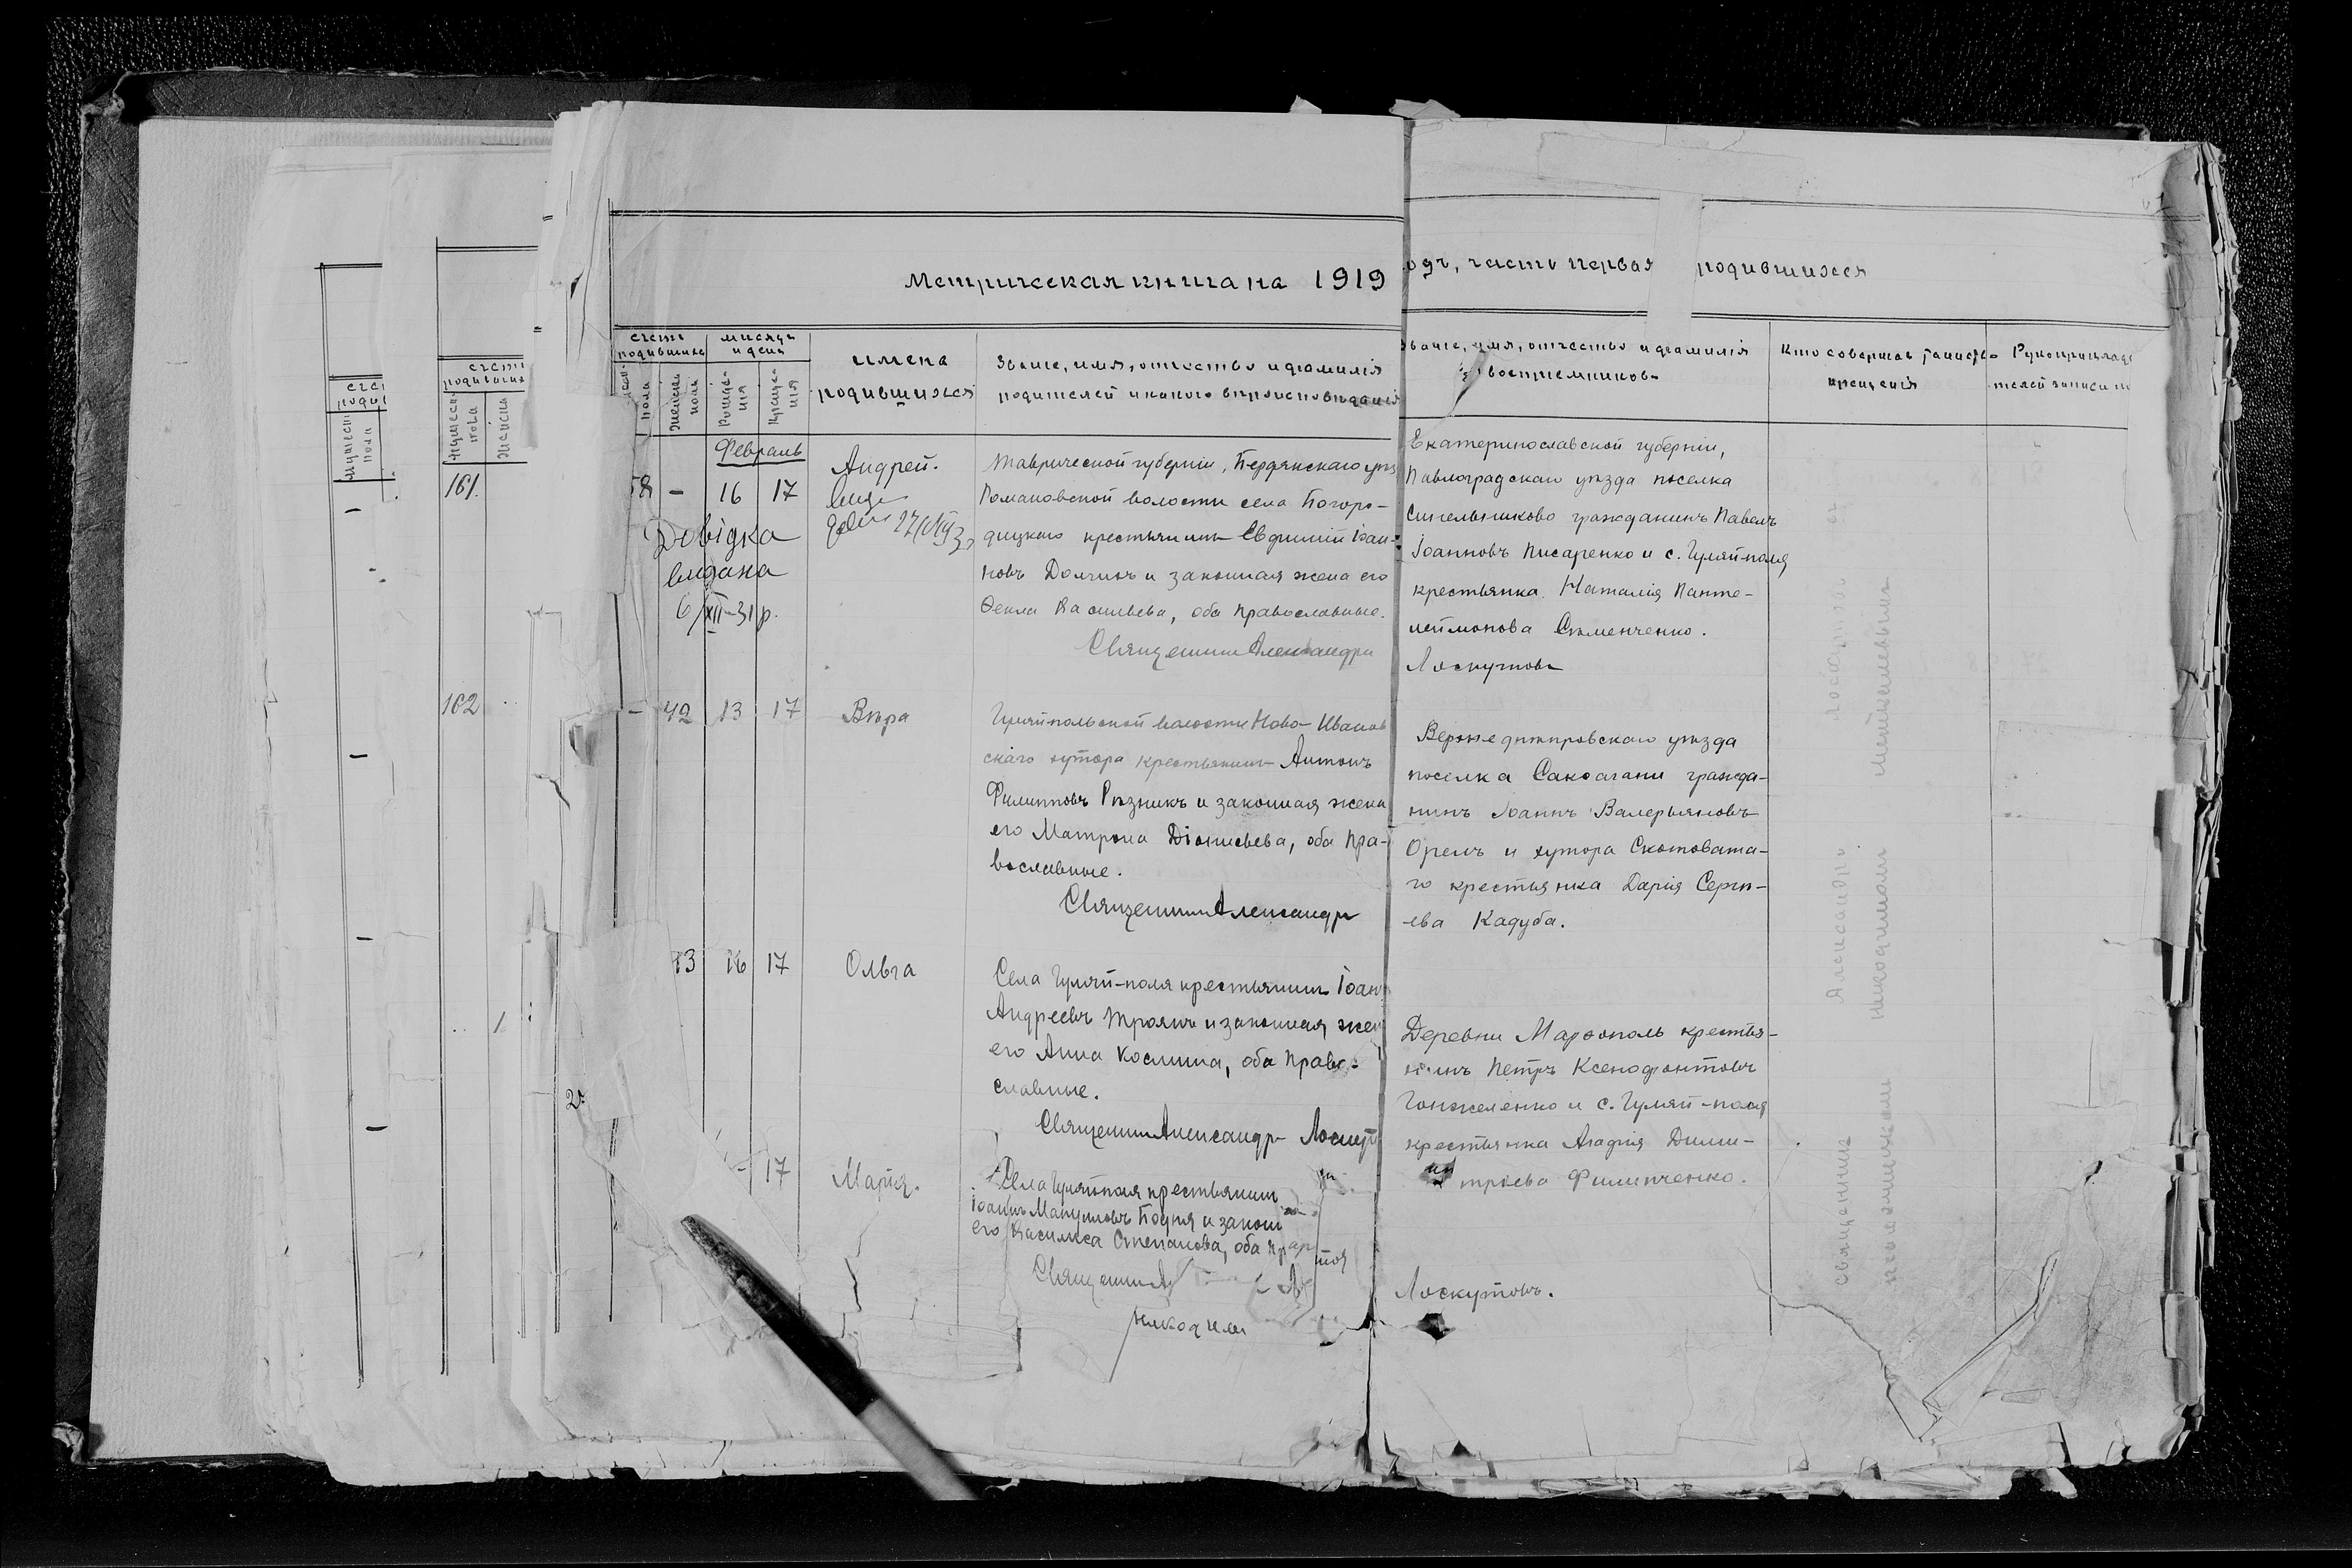 Метрическая книга на 1919
годъ, часть первая родившихся
счетъ родившихся
мѣсяцъ и день
имена родившихся
Званіе, имя, отчество и фамилія родителей и какого вѣроисповѣданія
Званіе, имя, отчество и фамилія воспріемниковъ
Кто совершалъ таинство крещенія
пола
Женска пола
Рожденія
Крещенія
Февраль
58 - 16 17
Андрей.
Довідка
видана
6/XII-31р.
Таврической губерніи, Бердянскаго уѣз
Романовской волости села Богоро-
дицкаго крестьянинъ Евфимій Іоан-
новъ Долчикъ и законная жена его
Ѳекла Васильева, оба православные.
Священникъ Александръ
Екатеринославской губерніи,
Павлоградскаго уѣзда поселка
Синельниково гражданинъ Павелъ
Іоанновъ Писаренко и с. Гуляй-поля
крестьянка Наталія Панте-
леймонова Семенченко.
Лоскутовъ
- 42 13 17
Вѣра
Гуляйпольской волости Ново-Иванов
скаго хутора крестьянинъ Антонъ
Филипповъ Рѣзникъ и законная жена
его Матрона Діонисьева, оба пра-
вославные.
Священникъ Александръ
Верхнеднѣпровскаго уѣзда
поселка Саксагани гражда-
нинъ Іоаннъ Валерьяновъ
Орелъ и хутора Скотовата-
го крестьянка Дарія Сергѣ-
ева Кадуба.
43 16 17
Ольга
Села Гуляй-поля крестьянинъ Іоан
Андреевъ Троянъ и законная жен
его Анна Космина, оба право-
славные.
Священникъ Александръ Лоскут
Деревни Марфополь крестья-
нинъ Петръ Ксенофонтовъ
Гонжеленко и с. Гуляй-поля
крестьянка Агафія Дими-
тріева Филипченко.
- 17
Марія.
Села Гуляйполя крестьянинъ
Іоаннъ Мануиловъ Бодня и закон
его Василиса Степанова, оба пра
Священникъ
Лоскутовъ.
никодим
161.
162
священникъ Александръ
псаломщикомъ никодимомъ